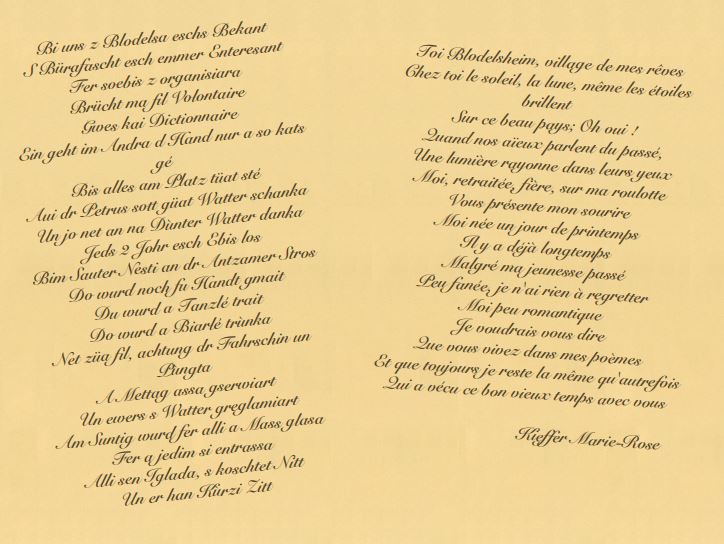 Bi uns z Blodelsa eschs Bekant
S Bürafascht esch emmer Enteresant
Fer soebis z organisiara
Brücht ma fil Volontaire
Gwes kai Dictionnaire
Ein geht im Andra d Hand nur a so kats
gé
Bis alles am Platz tüat sté
Aui dr Petrus sott güat Watter schanka
Un jo net an na Dùnter Watter danka
Jeds 2 Johr esch Ebis los
Bim Sauter Nesti an dr Antzamer Stros
Do wurd noch fu Handt gmait
Du wurd a Tanzlé trait
Do wurd a Biarlé trùnka
Net züa fil, achtung dr Fahrschin un
Pùngta
A Mettag assa gserwiart
Un ewers s Watter greglamiart
Am Suntig wurd fer alli a Mass glasa
Fer a jedim si entrassa
Alli sen Iglada, s koschtet Nitt
Un er han Kùrzi Zitt
Toi Blodelsheim, village de mes rêves
Chez toi le soleil, la lune, même les étoiles
brillent
Sur ce beau pays; Oh oui !
Quand nos aïeux parlent du passé,
Une lumière rayonne dans leurs yeux
Moi, retraitée, fière, sur ma roulotte
Vous présente mon sourire
Moi née un jour de printemps
Il y a déjà longtemps
Malgré ma jeunesse passé
Peu fanée, je n'ai rien à regretter
Moi peu romantique
Je voudrais vous dire
Que vous vivez dans mes poèmes
Et que toujours je reste la même qu'autrefois
Qui a vécu ce bon vieux temps avec vous
Kieffer Marie-Rose